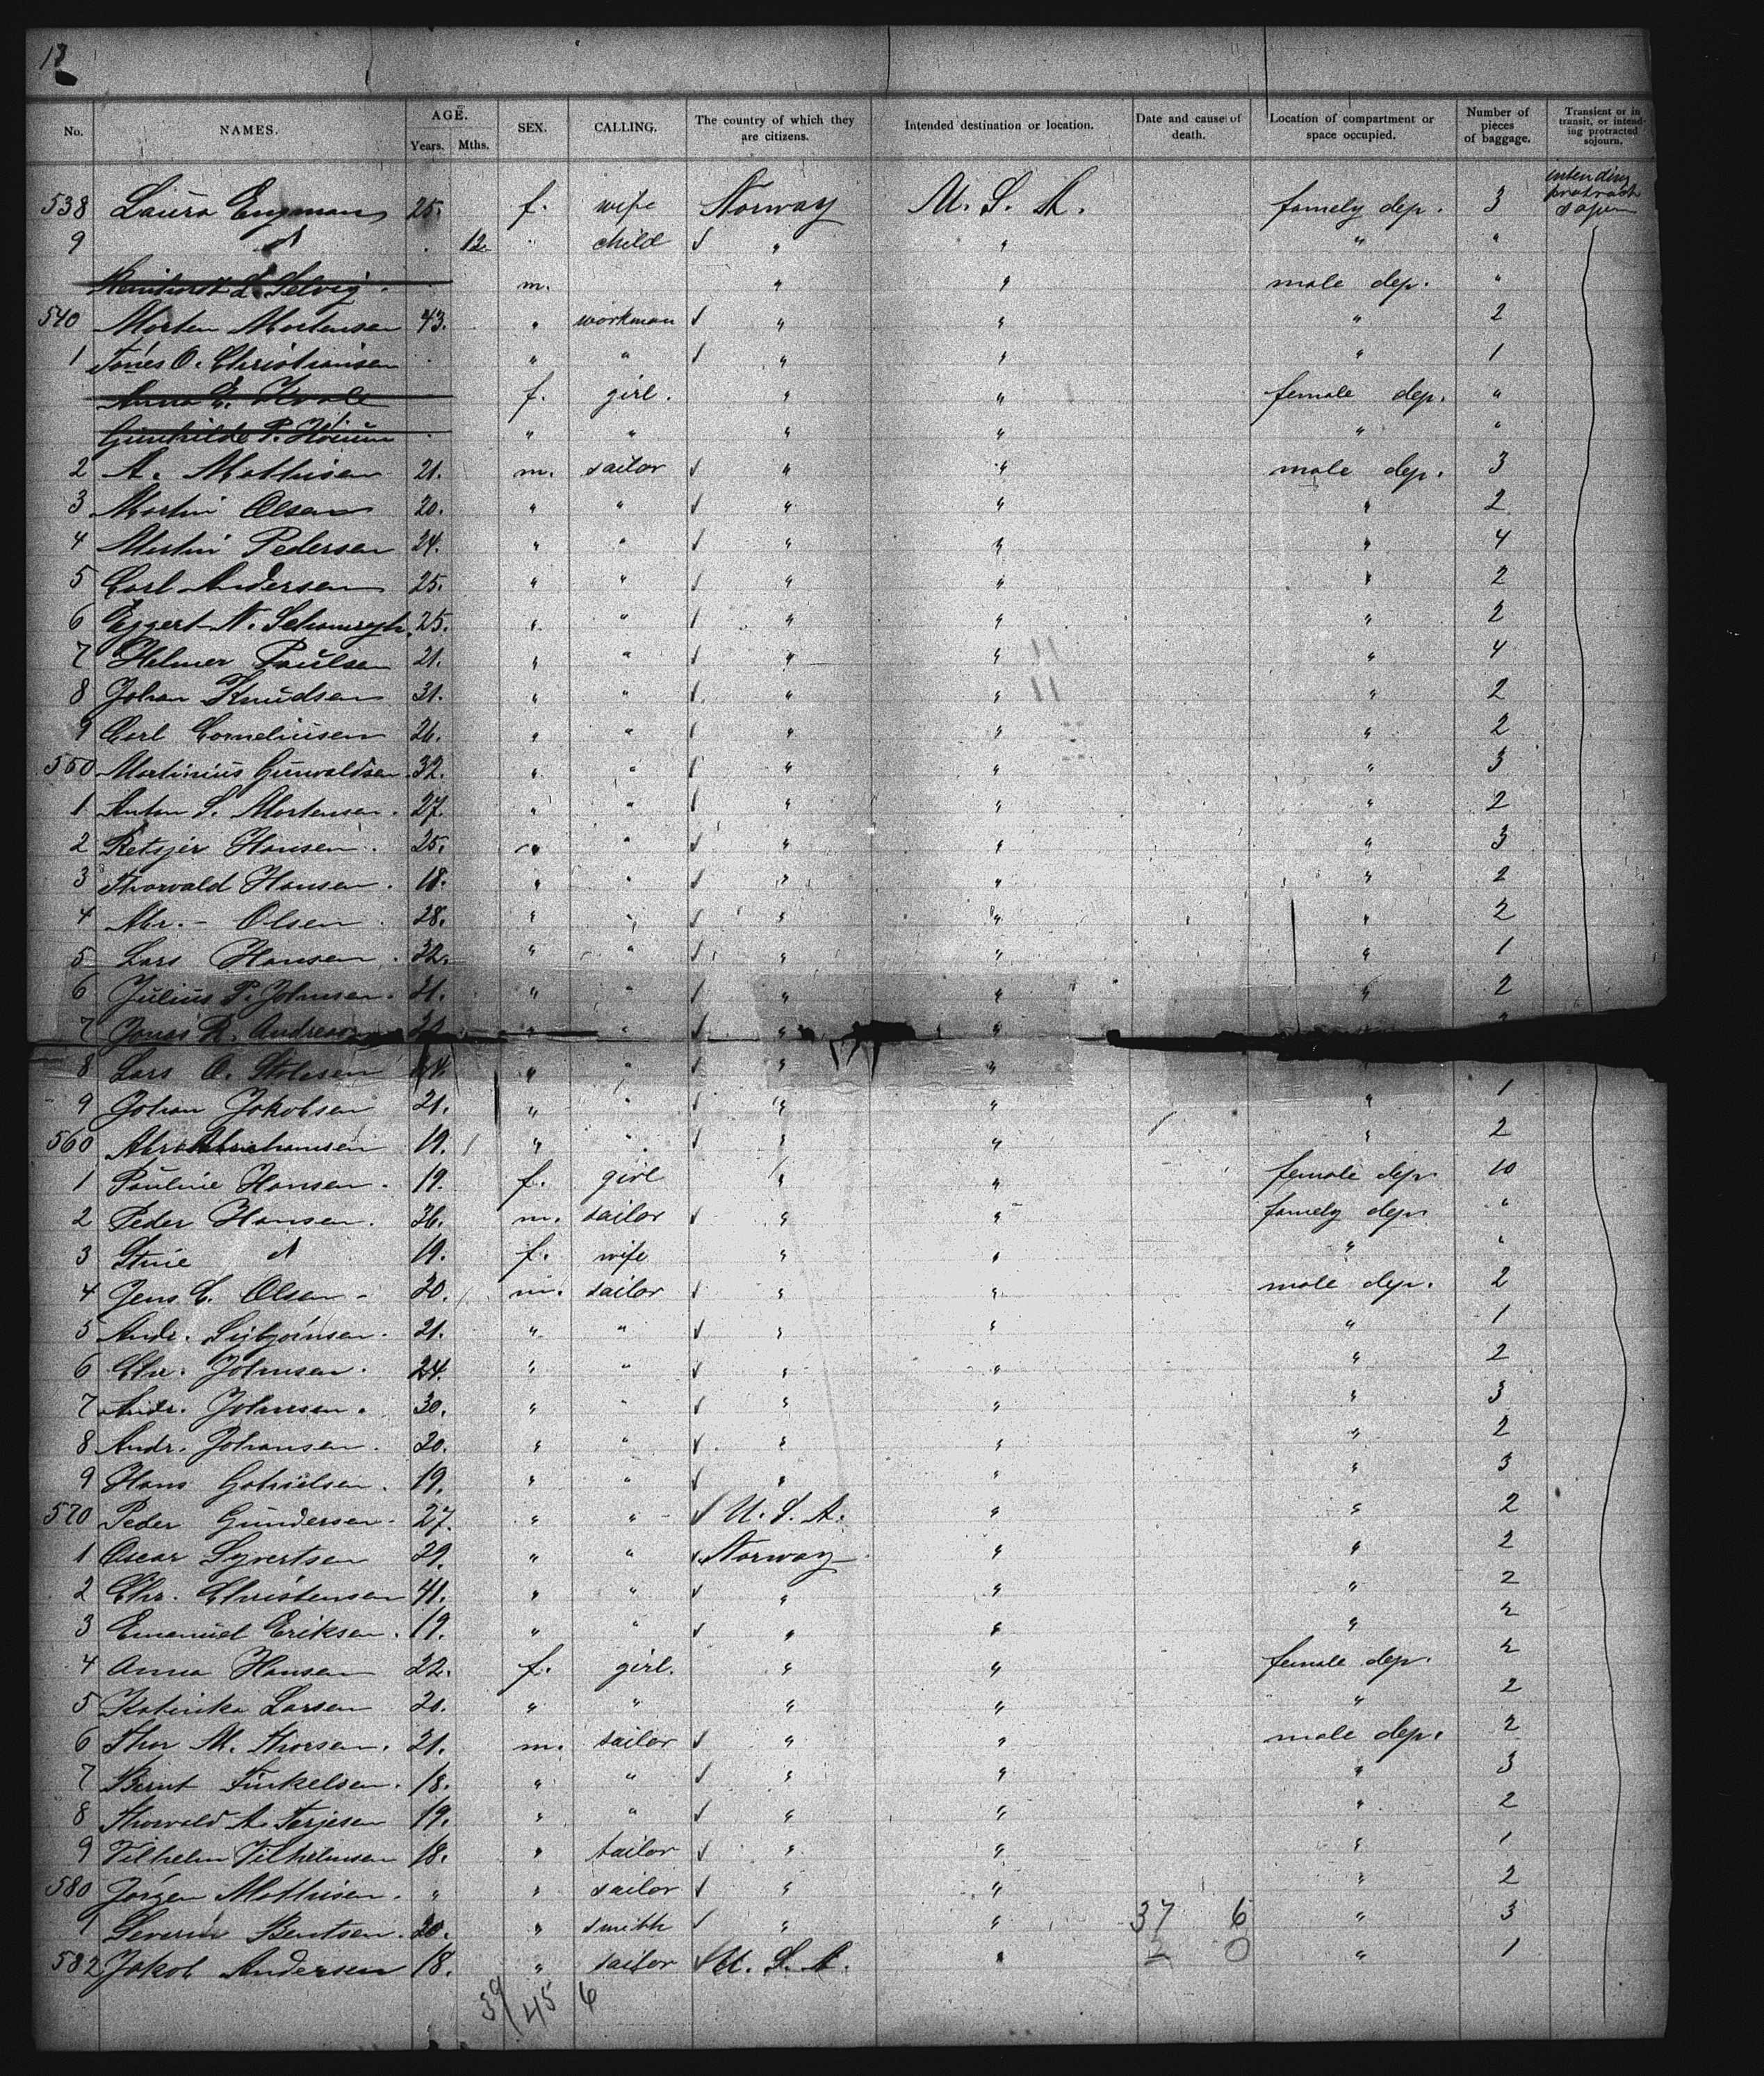 13
No. NAMES. AGE. Years. Mths. SEX. CALLING. The country of which they are citizens. Intended destination or location. Date and cause of death. Location of compartment or space occupied. Number of pieces of baggage. Transient or in transit, or intending protracted sojourn.
538 Laura Engmann 25. f. wife Norway U. S. A. famely dep. 3 intending protract sojurn
9 " 12 " child " " " "
Selvig m. " " male dep. "
540 Morten Mortensen 43. " workman " " " 2
1 Tönes O. Christiansen " " " " " 1
Anna E. f. girl. " " female dep. "
Gunhilde P. " " " " " "
2 A. Mathisen 21. m. sailor " " male dep. 3
3 Martin Olsen 20. " " " " " 2
4 Martin Pedersen 24. " " " " " 4
5 Carl Andersen 25. " " " " " 2
6 Eggert N. 25. " " " " " 2
7 Helmer Paulsen 21. " " " " " 4
8 Johan Knudsen 31. " " " " " 2
9 Carl Corneliusen 26. " " " " " 2
550 Martinius Gunvaldsen 32. " " " " " 3
1 Anton S. Mortensen. 27. " " " " " 2
2 Hansen. 25. " " " " " 3
3 Thorvald Hansen. 18. " " " " " 2
4 Olsen 28. " " " " " 2
5 Lars Hansen. 32. " " " " " 1
6 Julius P. Johnsen. 21. " " " " " 2
7 Jonas R. " " " "
8 Lars O. " " " "
9 Johan Jakobsen 21. " " " " " 1
560 Abrahamsen 19. " " " " " 2
1 Pauline Hansen. 19. f. girl " " female dep. 10
2 Peder Hansen. 26. m. sailor " " famely dep. "
3 Stine " 19. f. wife " " " "
4 Jens C. Olsen 30. m. sailor " " male dep. 2
5 Andr. 21. " " " " " 1
6 Chr. Johnsen. 24. " " " " " 2
7 Andr. Johnsen. 30. " " " " " 3
8 Andr. Johansen. 20. " " " " " 2
9 Hans 19. " " " " " 3
570 Peder Gundersen. 27. " " U. S. A. " " 2
1 Oscar Syvertsen 29. " " Norway " " 2
2 Chr. Christensen 41. " " " " " 2
3 Emanuel Eriksen. 19. " " " " " 2
4 Anna Hansen 22. f. girl. " " female dep. 2
5 Katinka Larsen 20. " " " " " 2
6 Thor M. Thorsen. 21. m. sailor " " male dep. 2
7 Bernt Finkelsen. 18. " " " " " 3
8 Thorvald A. Terjesen 19. " " " " " 2
9 Vilhelm Vilhelmsen 18. " tailor " " " 1
580 Jörgen Mathisen. " " sailor " " " 2
1 Severin Bentsen. 20. " smith " " 37 6 " 3
582 Jakob Andersen 18. " sailor U. S. A. " 2 0 " 1
39/45 6